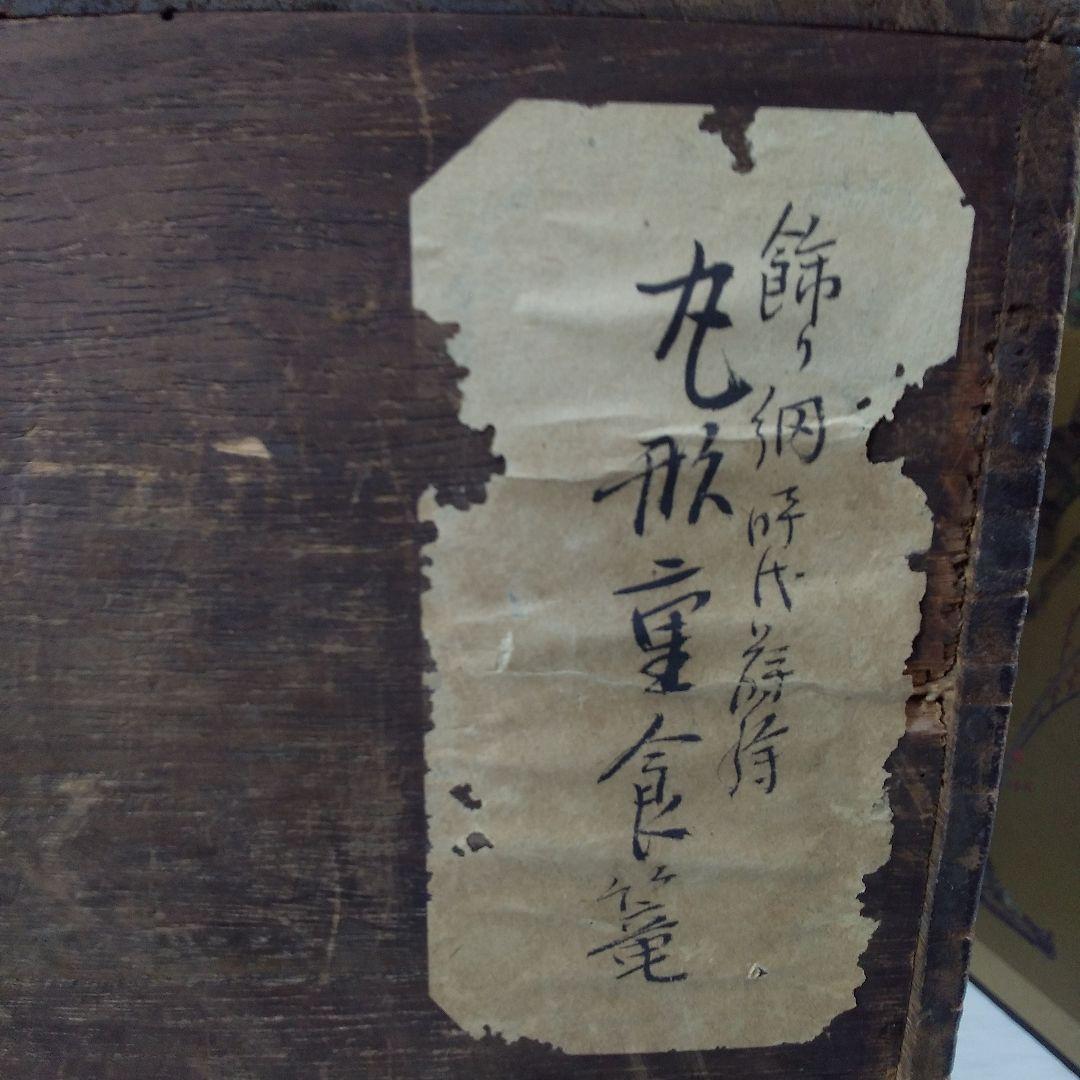 飾り網時代蒔絵
丸形重食籠